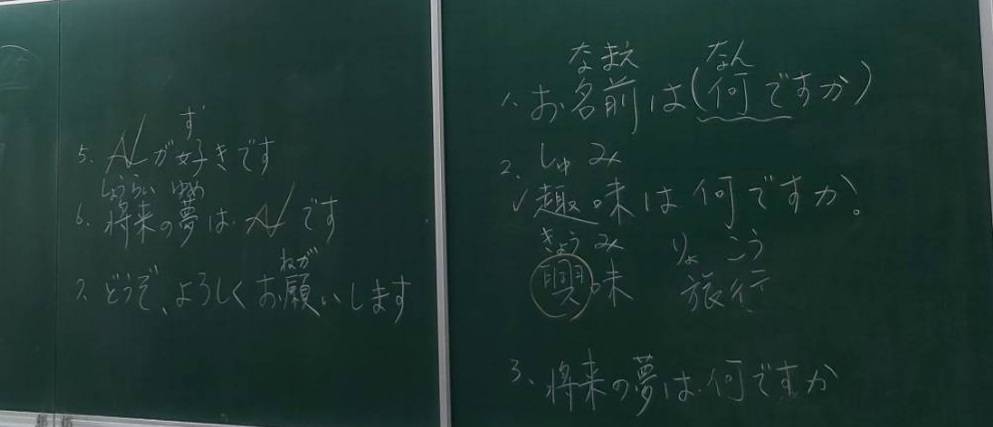 す
5、Nが好きです
しょうらい ゆめ
6、将来の夢は Nです
ねが
7、どうぞ、よろしくお願いします
なまえ なん
1、お名前は(何ですか)
しゅ み
2、趣味は何ですか。
きょう み りょ こう
興味 旅行
3、将来の夢は何ですか